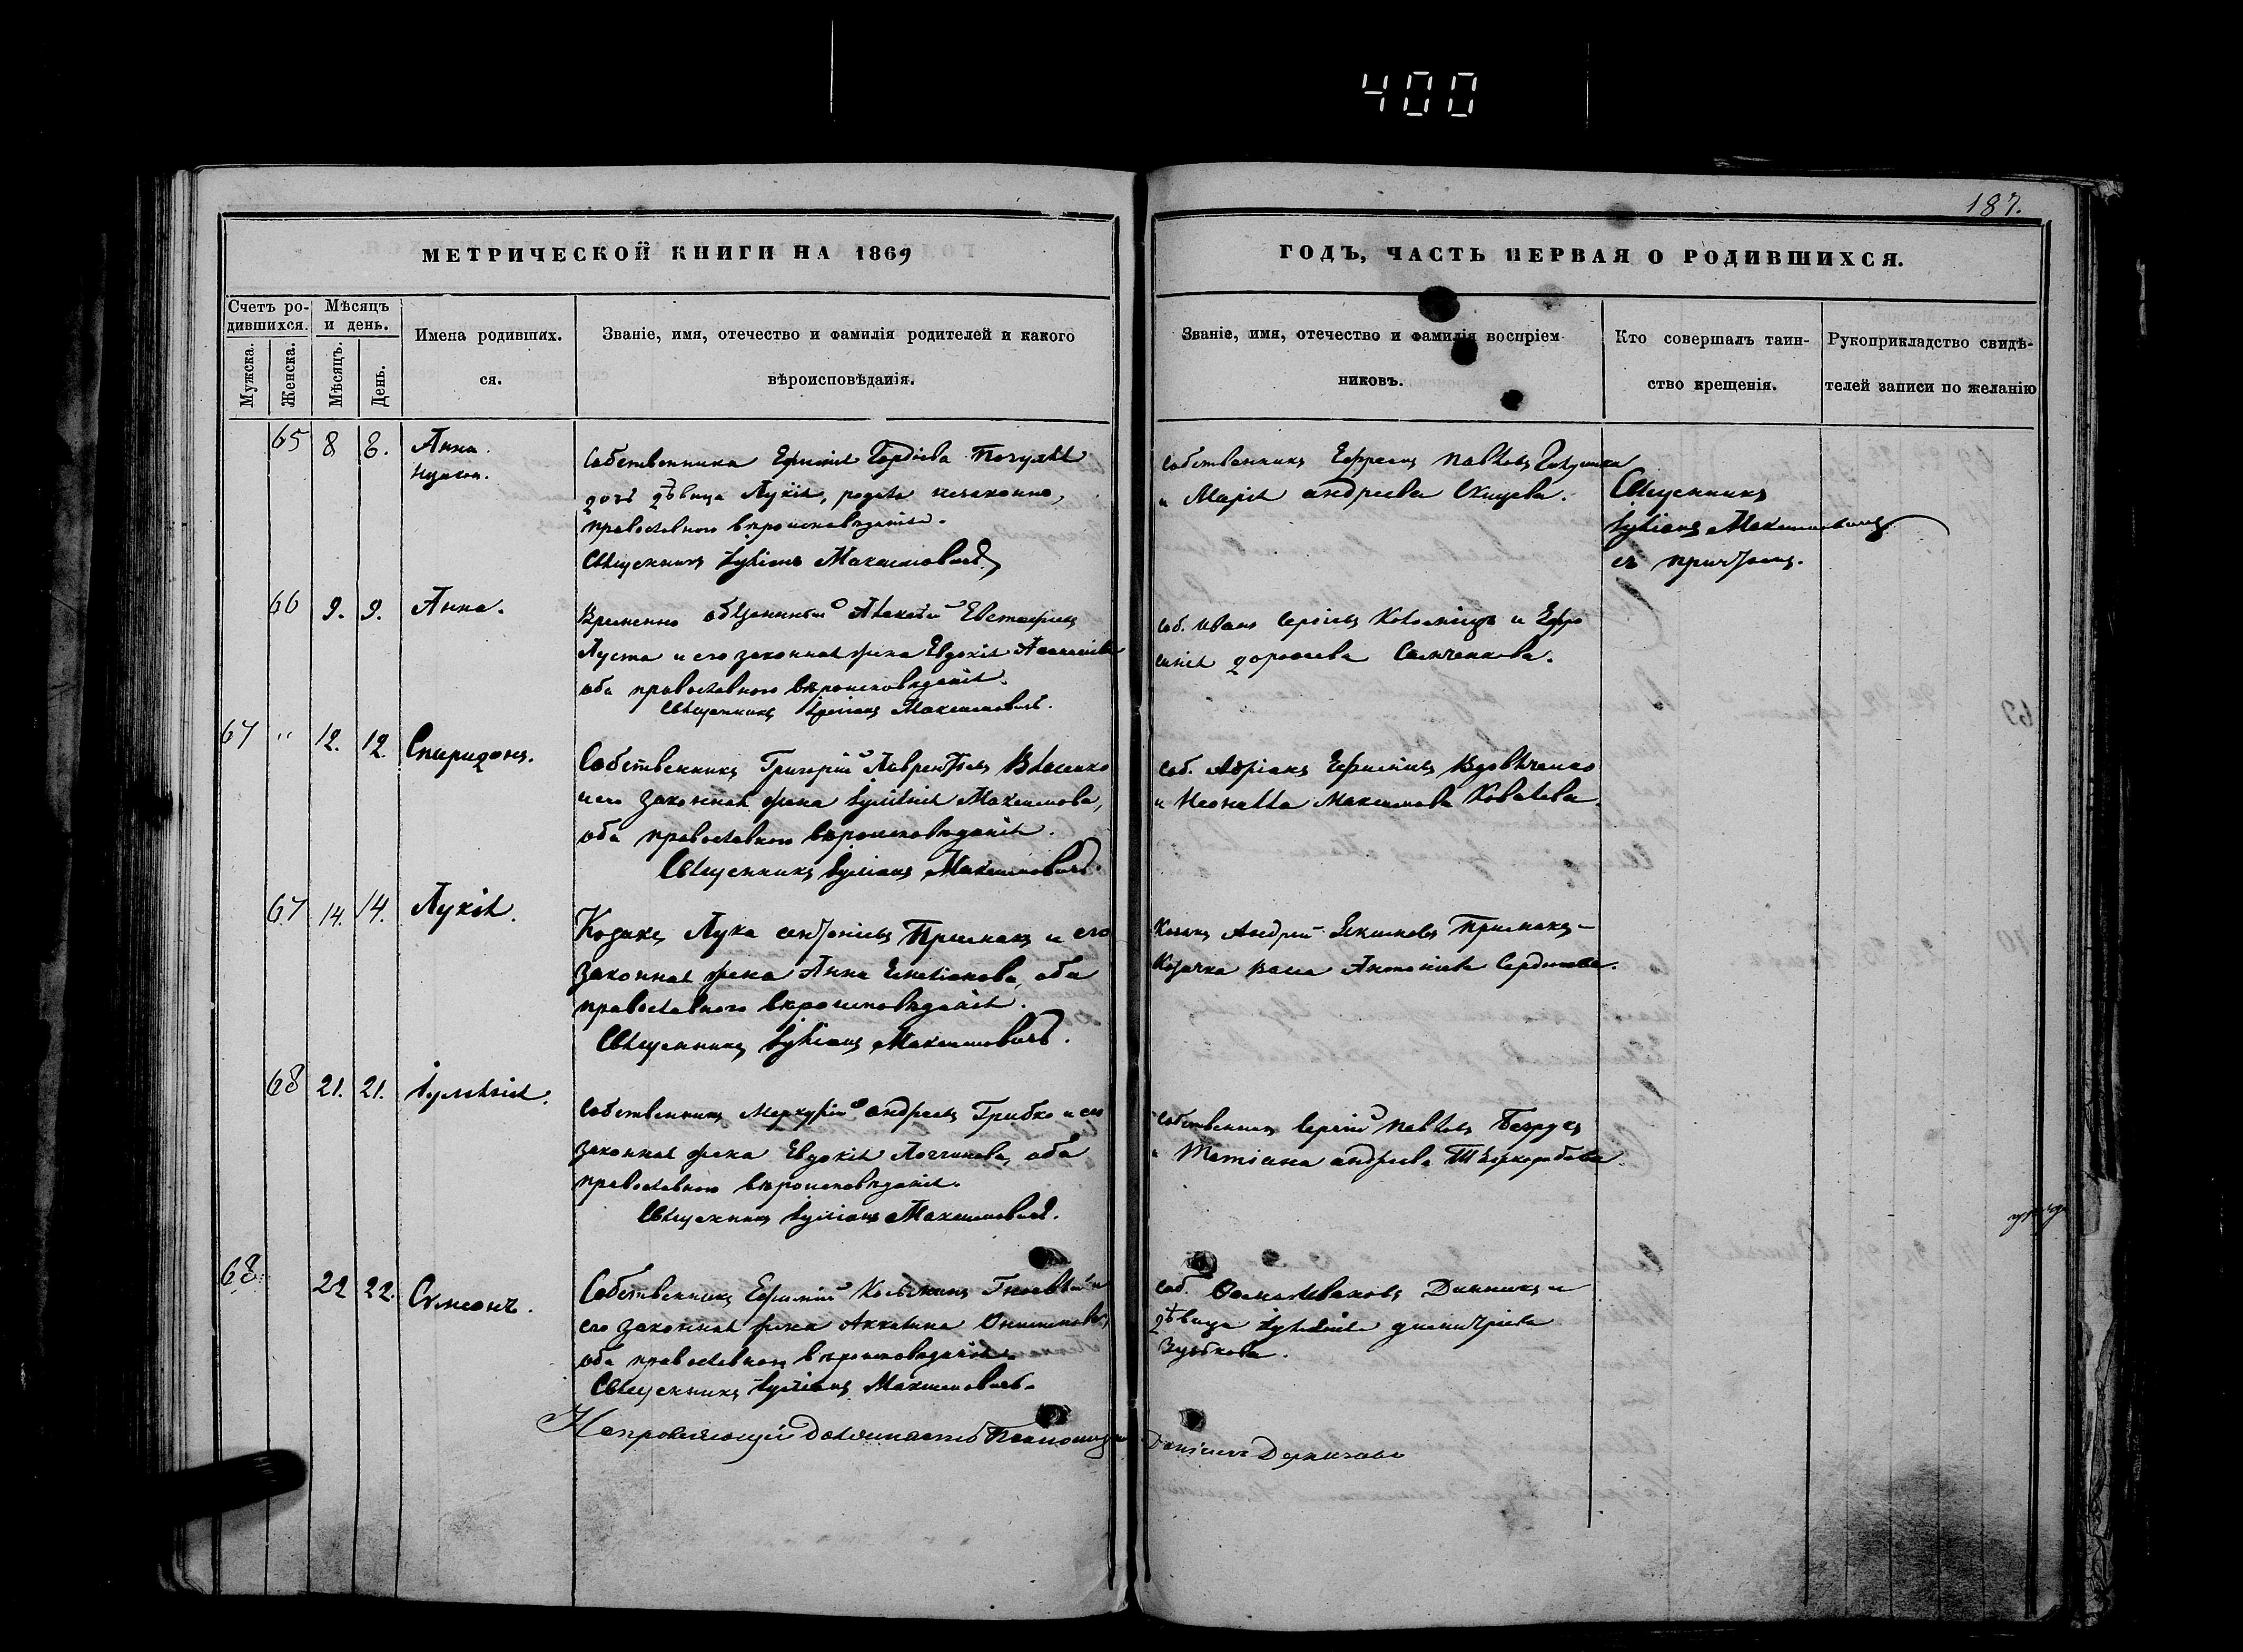 400
187.
МЕТРИЧЕСКОЙ КНИГИ НА 1869
ГОДЪ, ЧАСТЬ ПЕРВАЯ О РОДИВШИХСЯ.
Счетъ ро-
дившихся.
Мужска.
Женска.
Мѣсяцъ
и день.
Мѣсяцъ.
День.
Имена родивших.
ся.
Званіе, имя, отечество и фамилія родителей и какого
вѣроисповѣданія.
Званіе, имя, отечество и фамилія воспріем-
никовъ.
Кто совершалъ таин-
ство крещенія.
Рукоприкладство свидѣ-
телей записи по желанію
65 8 8. Анна.
Собственника Ефимія Гордіева
дочь дѣвица Лукія, родила незаконно,
православного вѣроисповѣданія.
Священникъ Іуліанъ Максимовичъ
Собственникъ Ефремъ Павловъ
и Марія андреева
Священникъ
Іуліанъ Максимовичъ
съ причтомъ.
66 9. 9. Анна.
Временно обязанный Алексѣй Евстафіевъ
Пуста и его законная жена Евдокія
оба православного вѣроисповѣданія.
Священникъ Іуліанъ Максимовичъ.
Соб. Иванъ Сергіевъ и Ефро
синія дорофеева
67 " 12. 12. Спиридонъ.
Собственникъ Григорій Лаврентіевъ Власенко
и его законная жена Іуліанія Максимова,
оба православного вѣроисповѣданія.
Священникъ Іуліанъ Максимовичъ.
Соб. Адріанъ Ефиміевъ Вдовиченко
и Неонилла Максимова Ковалева.
67 14. 14. Лукія.
Козакъ Лука антоніевъ Примакъ и его
законная жена Анна Емеліанова, оба
православного вѣроисповѣданія.
Священникъ Іуліанъ Максимовичъ.
Козакъ Андрей Якимовъ Примакъ -
Козачка Васса Антоніева
68 21. 21. Іуліанія.
Собственникъ Меркурій андреевъ Грибко и его
законная жена Евдокія Логгинова, оба
православного вѣроисповѣданія.
Священникъ Іуліанъ Максимовичъ.
Собственникъ Сергій Павловъ Безрукъ
и Татіана андреева
68. 22 22. Сѵмеонъ.
Собственникъ Ефимій Гноевый и
его законная жена Акилина Онисимова,
оба православного вѣроисповѣданія.
Священникъ Іуліанъ Максимовичъ.
Соб. Ѳома Ивановъ Динникъ и
дѣвица Іуліанія димитріева
Зубкова.
Исправляющій должность Псаломщика